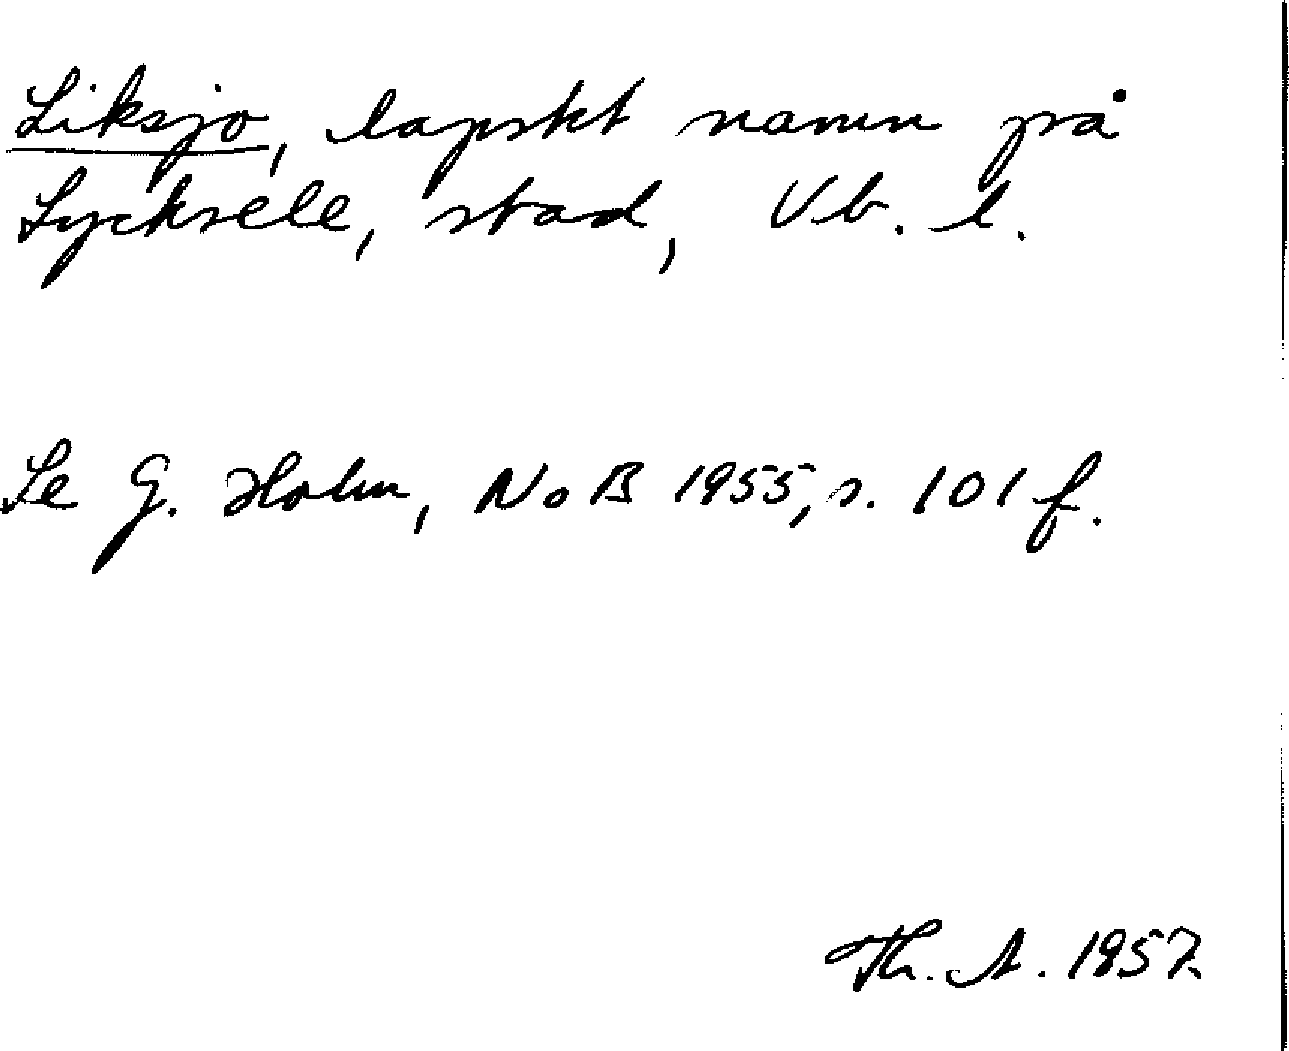 Liksjo, lapskt namn på
Lycksele, stad, Vb. l.
Se G. Holm, NoB 1955, s. 101 f.
Th. A. 1957